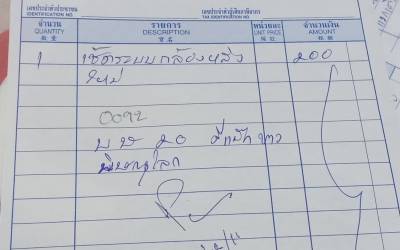 เลขประจำตัวประชาชน
IDENTIFICATION NO.
เลขประจำตัวผู้เสียภาษีอากร
TAX IDENTIFICATION NO.
จำนวน
QUANTITY
數量
รายการ
DESCRIPTION
貨名
หน่วยละ
UNIT PRICE
單價
จำนวนเงิน
AMOUNT
銀碼
1 เช็ดระบบกล้องหลัง 200
ใหม่
0092
บษ 20
พิษณุโลก